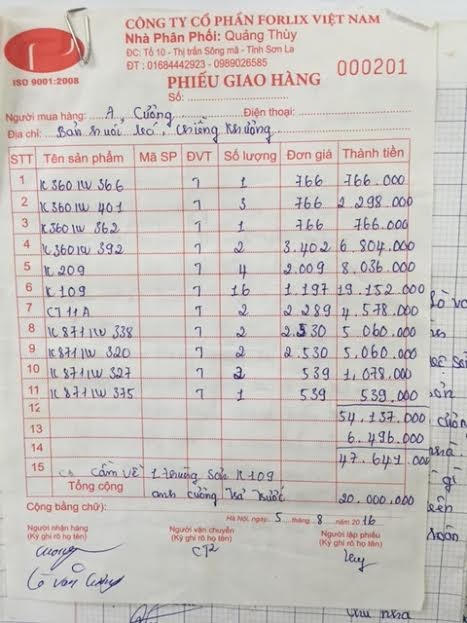 CÔNG TY CỔ PHẦN FORLIX VIỆT NAM
Nhà Phân Phối: Quảng Thùy
ĐC: Tổ 10 - Thị trấn Sông mã - Tỉnh Sơn La
ĐT : 01684442923 - 0989026585
ISO 9001:2008
PHIẾU GIAO HÀNG
000201
Số:
Người mua hàng: A, Cường Điện thoại:
Địa chỉ: Bản Chiềng Khương
STT Tên sản phẩm Mã SP ĐVT Số lượng Đơn giá Thành tiền
1 K360IW 366 7 1 766 766.000
2 K360IW 401 7 3 766 2 298.000
3 K360IW 362 7 1 766 766.000
4 K360IW 392 7 2 3.402 6.804.000
5 K 209 7 4 2.009 8.036.000
6 K 109 7 16 1.197 19.152.000
7 CT 11A 7 2 2.289 4.578.000
8 K 871 IW 338 7 2 2.530 5.060.000
9 K 871 IW 320 7 2 2.530 5.060.000
10 K 871 IW 327 7 2 539 1,078.000
11 K 871 IW 375 7 1 539 539.000
12 54.137.000
13 6.496.000
14 47.641.000
15 cầm về 1 thùng sơn K109
Tổng cộng anh cường trả trước 20.000.000
Cộng bằng chữ):
Hà Nội, ngày 5 tháng 8 năm 2016
Người nhận hàng Người vận chuyển Người lập phiếu
(Ký ghi rõ họ tên) (Ký ghi rõ họ tên) (Ký ghi rõ họ tên)
Cường CT2